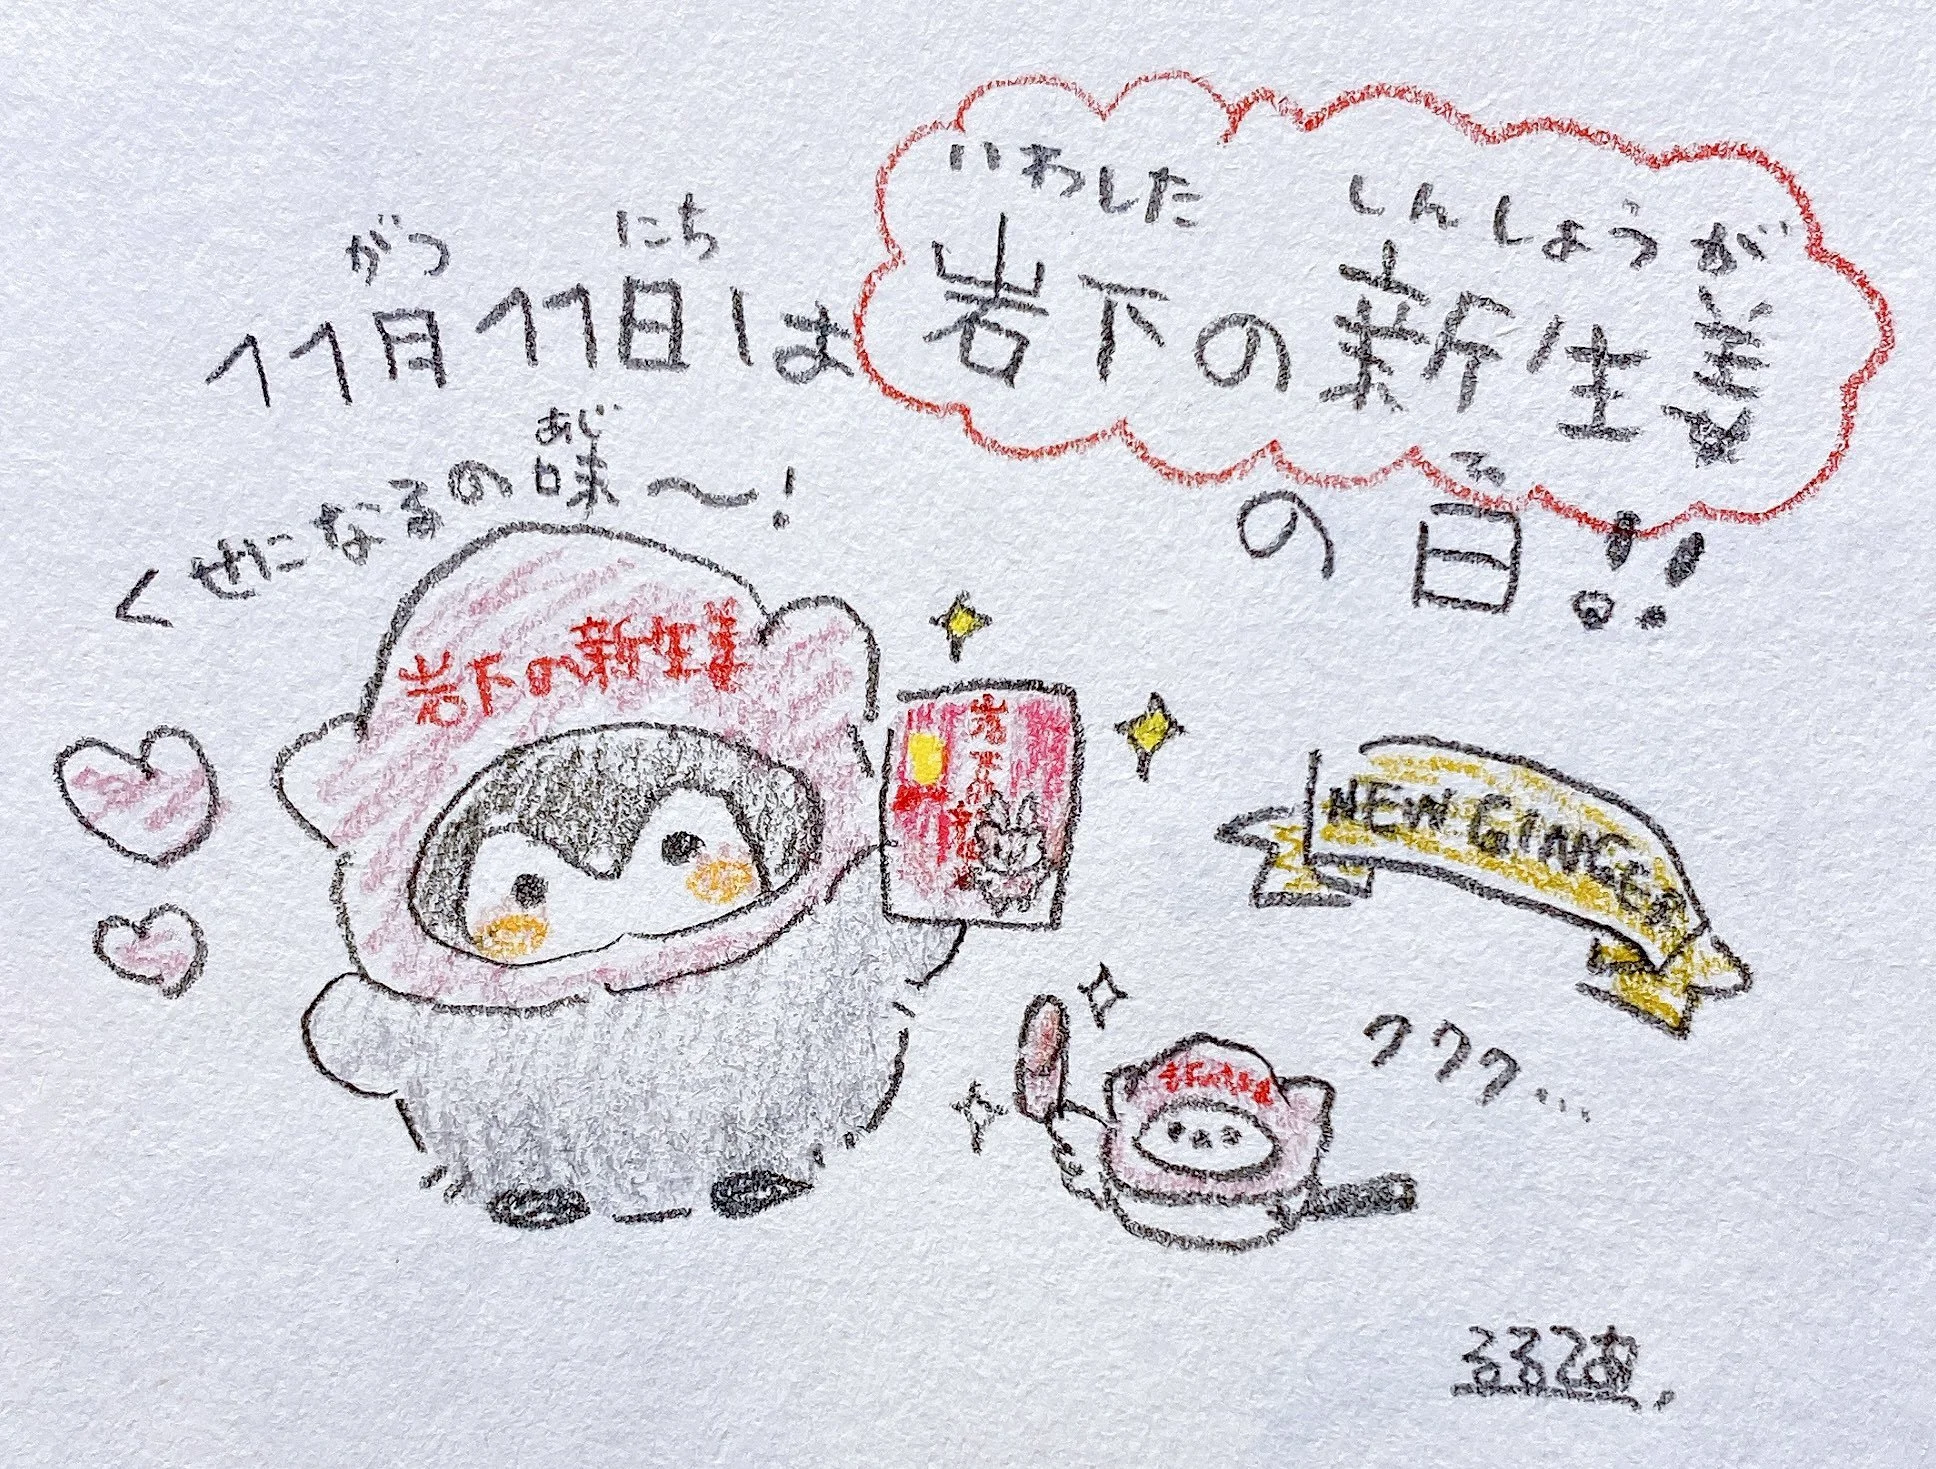 がつ にち
11月11日は
いわした しんしょうが
岩下の新生姜
ひ
の日!!
あじ
くせになるの味〜!
岩下の新生姜
NEW GINGER
ククク...